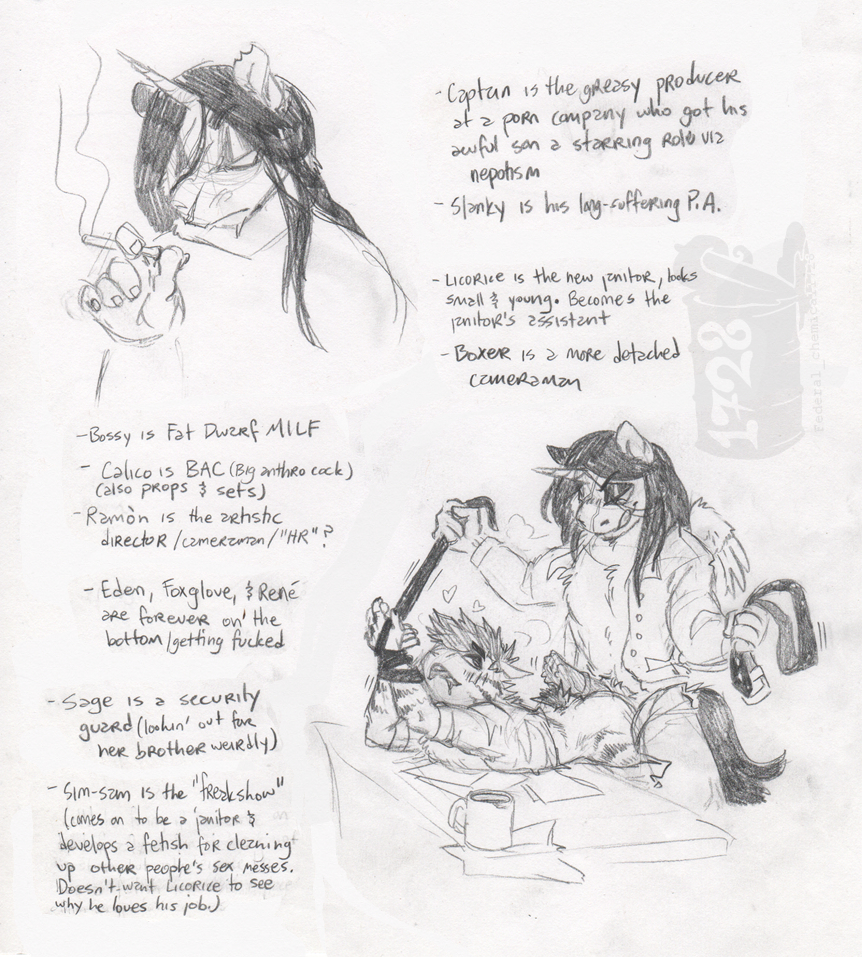 - Captain is the greasy producer
at a porn company who got his
awful son a starring role via
nepotism
- Slanky is his long-suffering P.A.
- Licorice is the new janitor, looks
small & young. Becomes the
janitor's assistant
- Boxer is a more detached
cameraman
- Bossy is Fat Dwarf MILF
- Calico is BAC (Big anthro cock)
(also props & sets)
- Ramòn is the artistic
director/cameraman/"HR"?
- Eden, Foxglove, & René
are forever on the
bottom/getting fucked
- Sage is a security
guard (lookin' out for
her brother weirdly)
- Sim-sam is the "freakshow"
(comes on to be a janitor &
develops a fetish for cleaning
up other people's sex messes.
Doesn't want Licorice to see
why he loves his job.)
1728